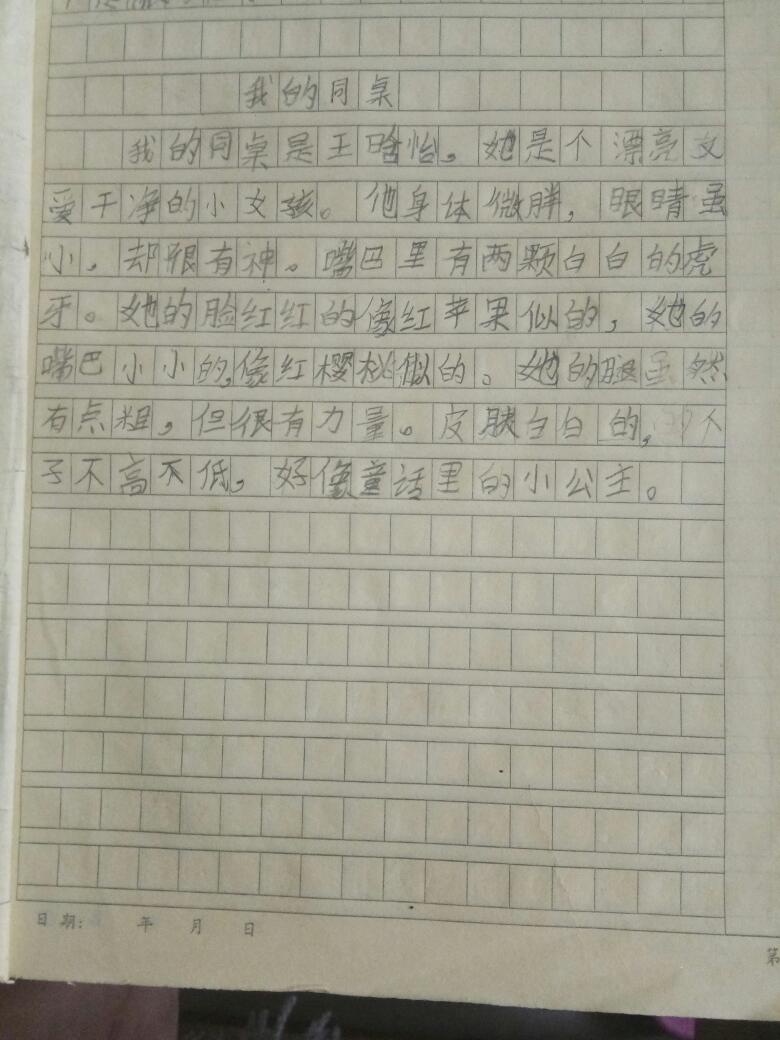 我的同桌
我的同桌是王晗怡。她是个漂亮又
爱干净的小女孩。他身体微胖，眼睛虽
小，却很有神。嘴巴里有两颗白白的虎
牙。她的脸红红的像红苹果似的，她的
嘴巴小小的，像红樱桃似的。她的腿虽然
有点粗，但很有力量。皮肤白白的，个
子不高不低，好像童话里的小公主。
日期： 年 月 日
第